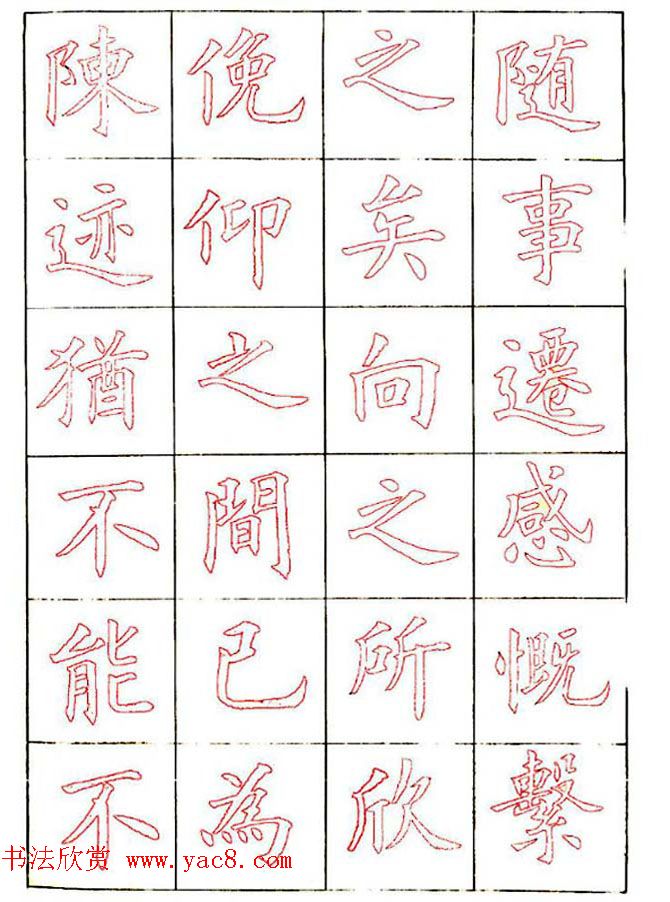 随事遷感慨繫
之矣向之所欣
俛仰之間已為
陳迹猶不能不
书法欣赏 www.yac8.com